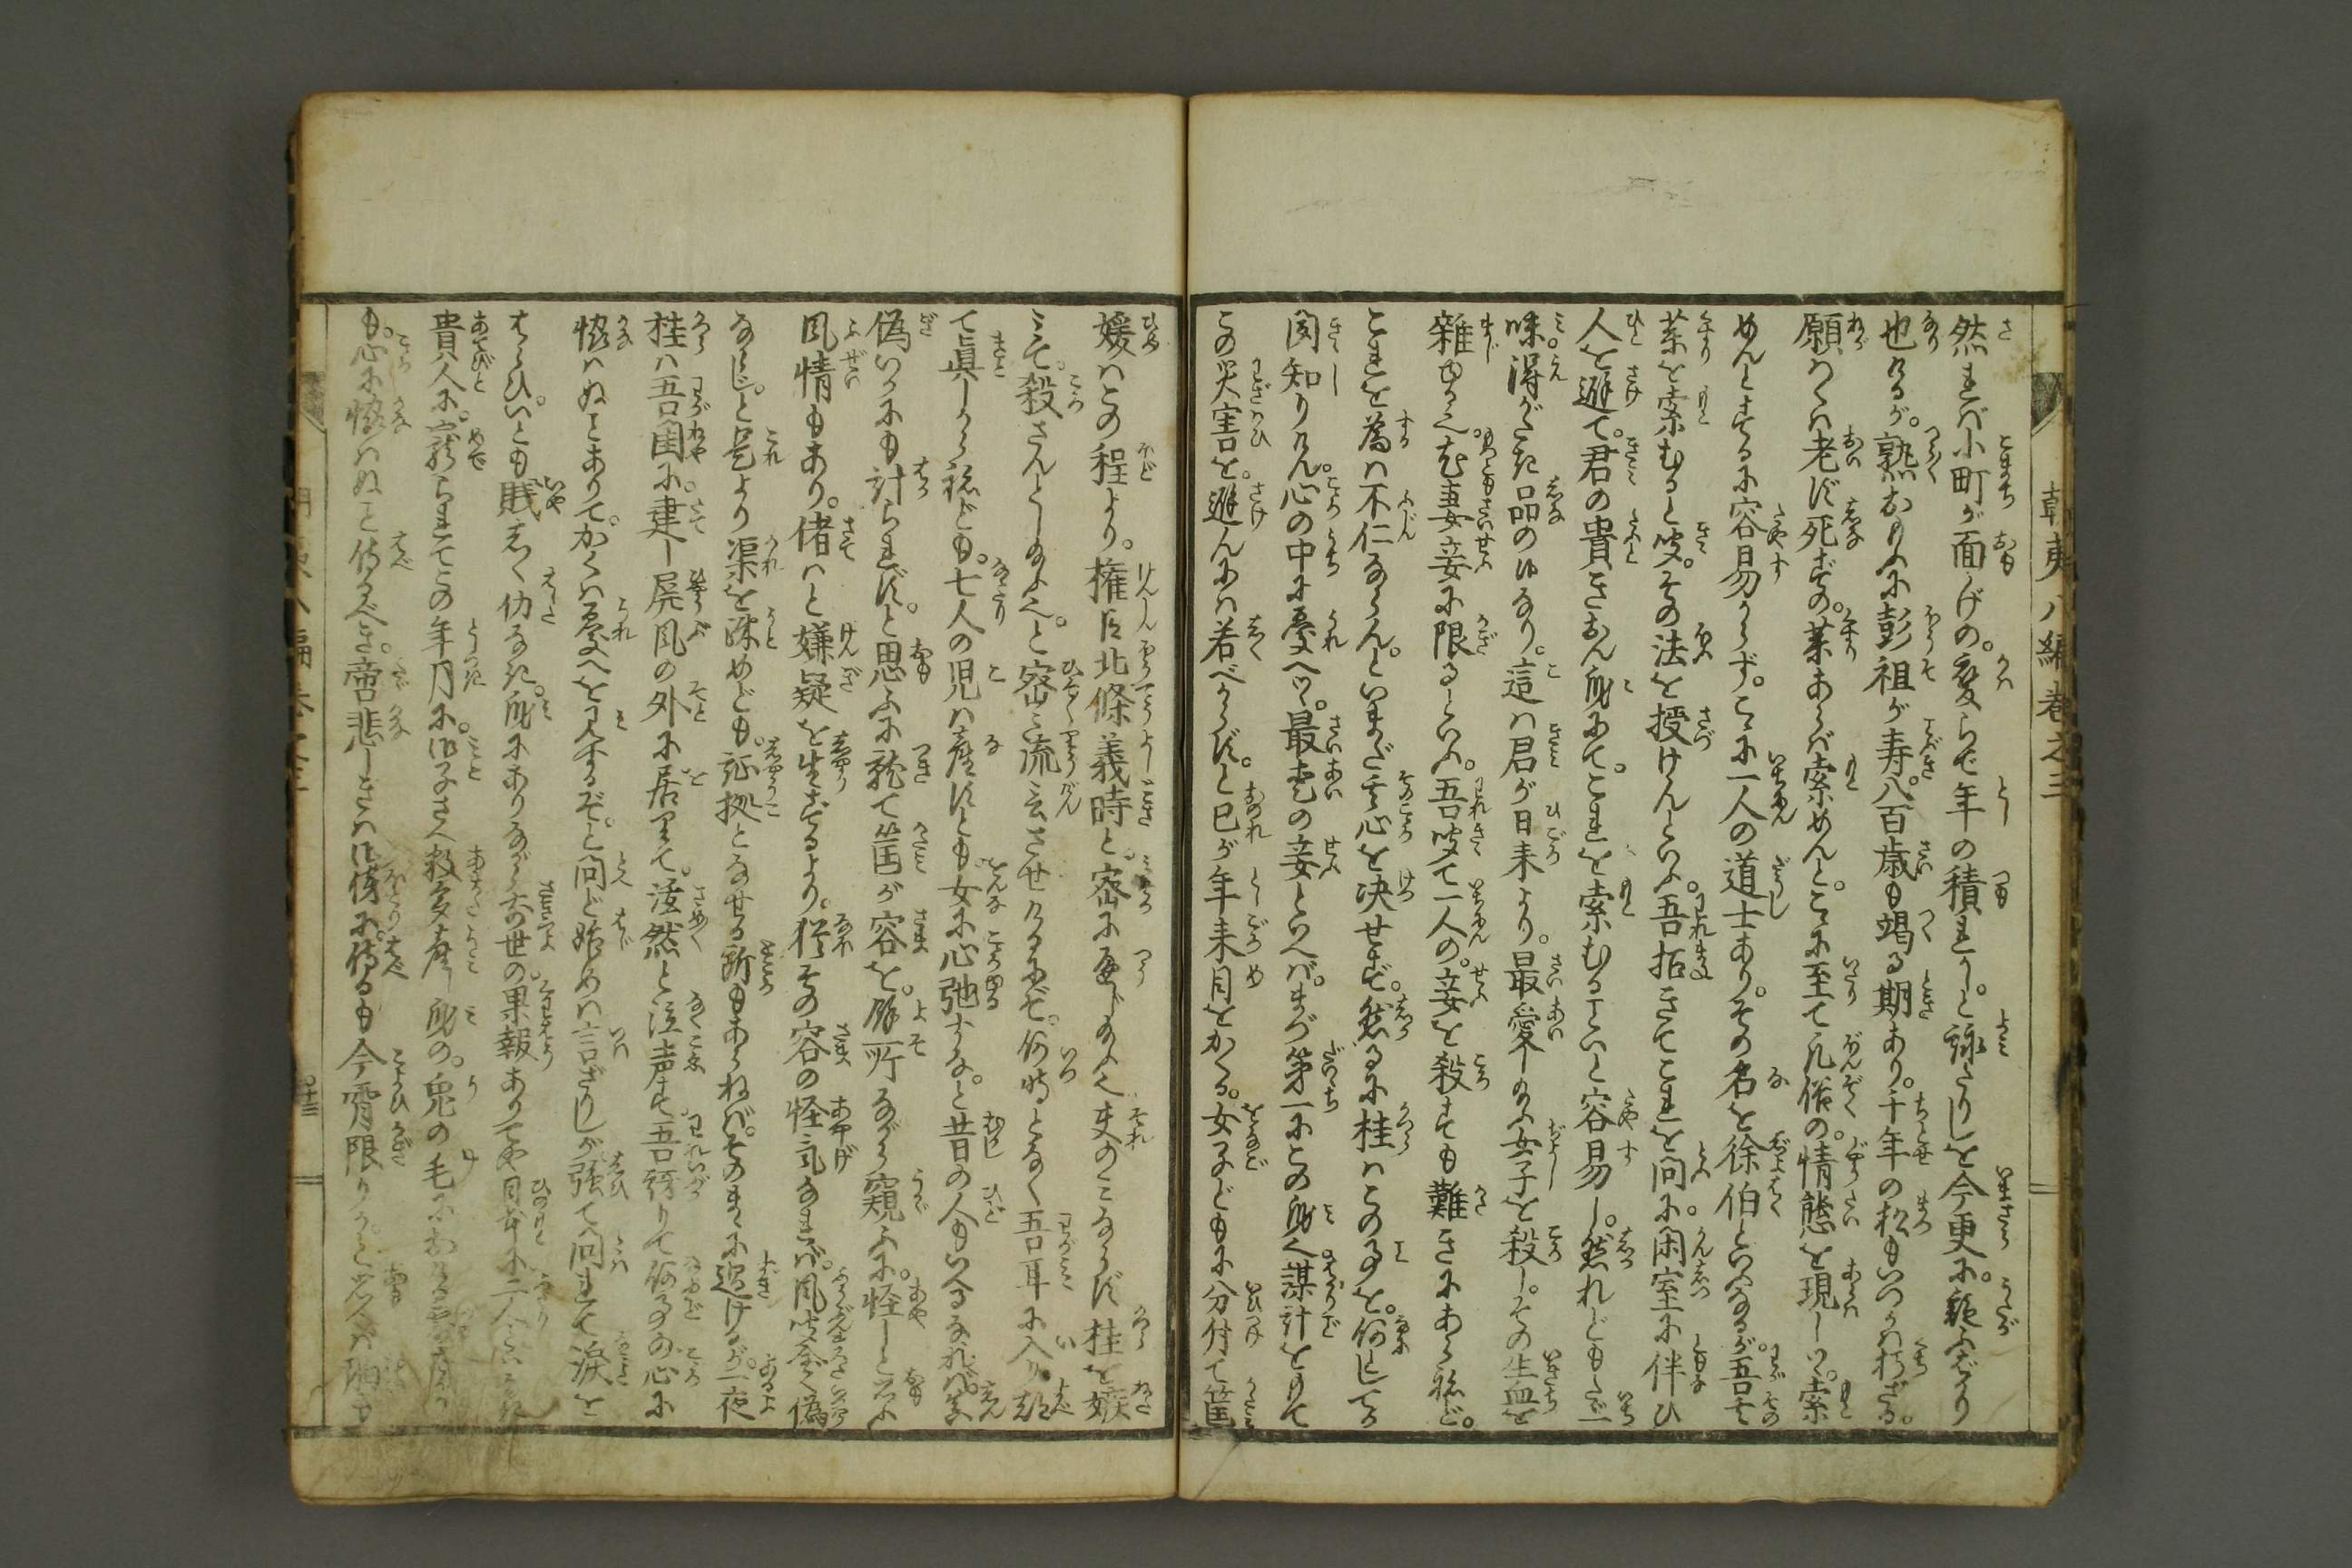 朝夷八編巻之三
然れば小町が面かげの。変らで年の積れかし。と詠たりしを今更に。
也けるが。熟おもふに彭祖が寿。八百歳も竭る期あり。千年の松もいつかは朽ざる。
願はくは老ず死ずの。薬あらば索めんと。こゝに至て凡俗の。情態を現しつ。索
めんとするに容易からず。こゝに一人の道士あり。その名を徐伯といへるが。吾其
薬を索むると聞。その法を授けんといふ。吾招きてこれを問に。閑室に伴ひ
人を避て。君の貴きおん身にて。これを索むること容易し。然れどもたゞ一
味得がたき品の侍るなり。這は君が日来より。最愛し給ふ女子を殺し。その生血を
雑ゆるへ。尤妻妾に限るといふ。吾聞て一人の。妾を殺すも難きにあらねど。
これを為は不仁ならん。といまだ其心を決せず。然るに桂はこの事を。何してか
聞知りけん。心の中に憂へつゝ。最愛の妾といへば。まづ第一にこの身へ。謀計をもて
この災害を。避んには若べからず。と己が年来目をかくる。女子どもに分付て筐
媛はこの程より。権臣北條義時と密に通じ給へ。夫のみならず桂を嫉
みて。殺さんとし給ふへ。と密々流言させけるにぞ。何時となく吾耳に入りぬ
て真しからねども。七人の児は産すとも。女に心弛すな。と昔の人もいへるなれば。
偽いかにも計られず。と思ふに就て筐が容を。餘所ながら窺ふに。怪しと思ふ
風情もあり。偖はと嫌疑を生ずるより。猶その容の怪気なれば。風聞全く偽
ならじ。と是より渠を疎めども。証拠となせる所もあらねば。そのまゝに過けるが。一夜
桂は吾閨に。建し屏風の外に居りて。潸然と泣声す。吾訝りて何事の心に
悩はぬことありて。かくは憂へを見するぞ。と問ど始めは言ざりしが。強て問れて涙を
はらひ。いとも賎しく仂なき。身にありながら前世の。果報ありてや日本に二人
貴人に。寵られてこの年月に。御子さへ数多産し身の。兎の毛に
も。心に悩はぬこと侍るべき。啻悲しきは御傍に。侍るも今宵限りか。と思へば